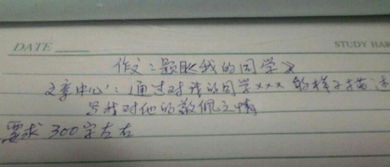 DATE
STUDY HAR
作文:题《我的同学》
文章中心:通过对我的同学xxx的样子描述
写我对他的敬佩之情
要求300字左右